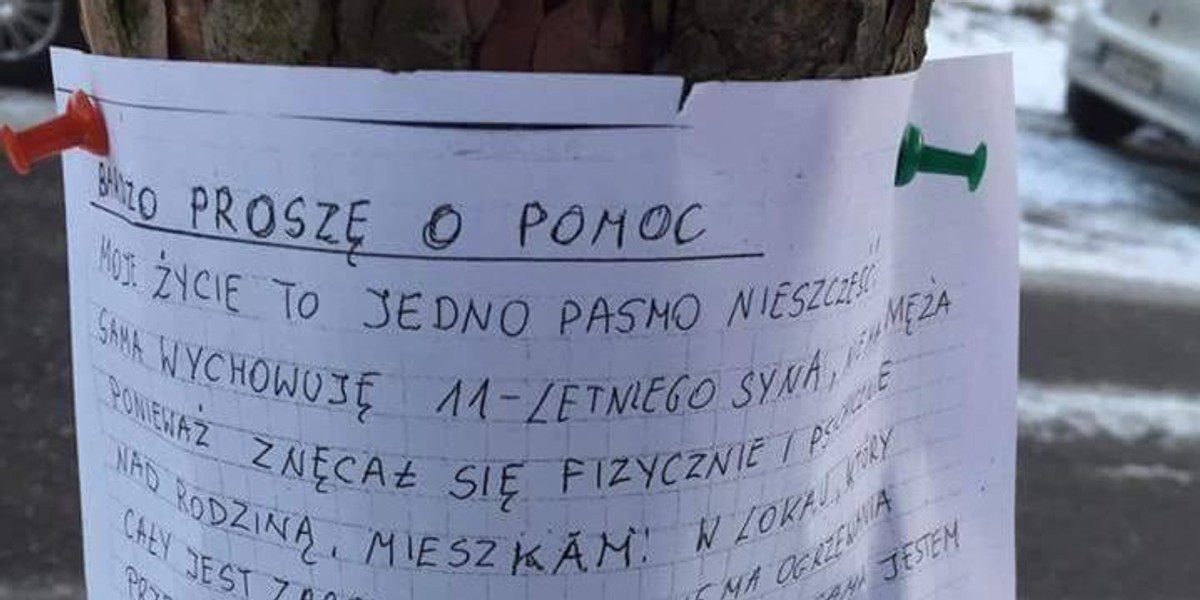 BARDZO PROSZĘ O POMOC
MOJE ŻYCIE TO JEDNO PASMO NIESZCZĘŚĆ
SAMA WYCHOWUJĘ 11-LETNIEGO SYNA, NIE MAM MĘŻA
PONIEWAŻ ZNĘCAŁ SIĘ FIZYCZNIE I PSYCHICZNIE
NAD RODZINĄ. MIESZKAM W LOKALU, KTÓRY
CAŁY JEST MA OGRZEWANIA
JESTEM